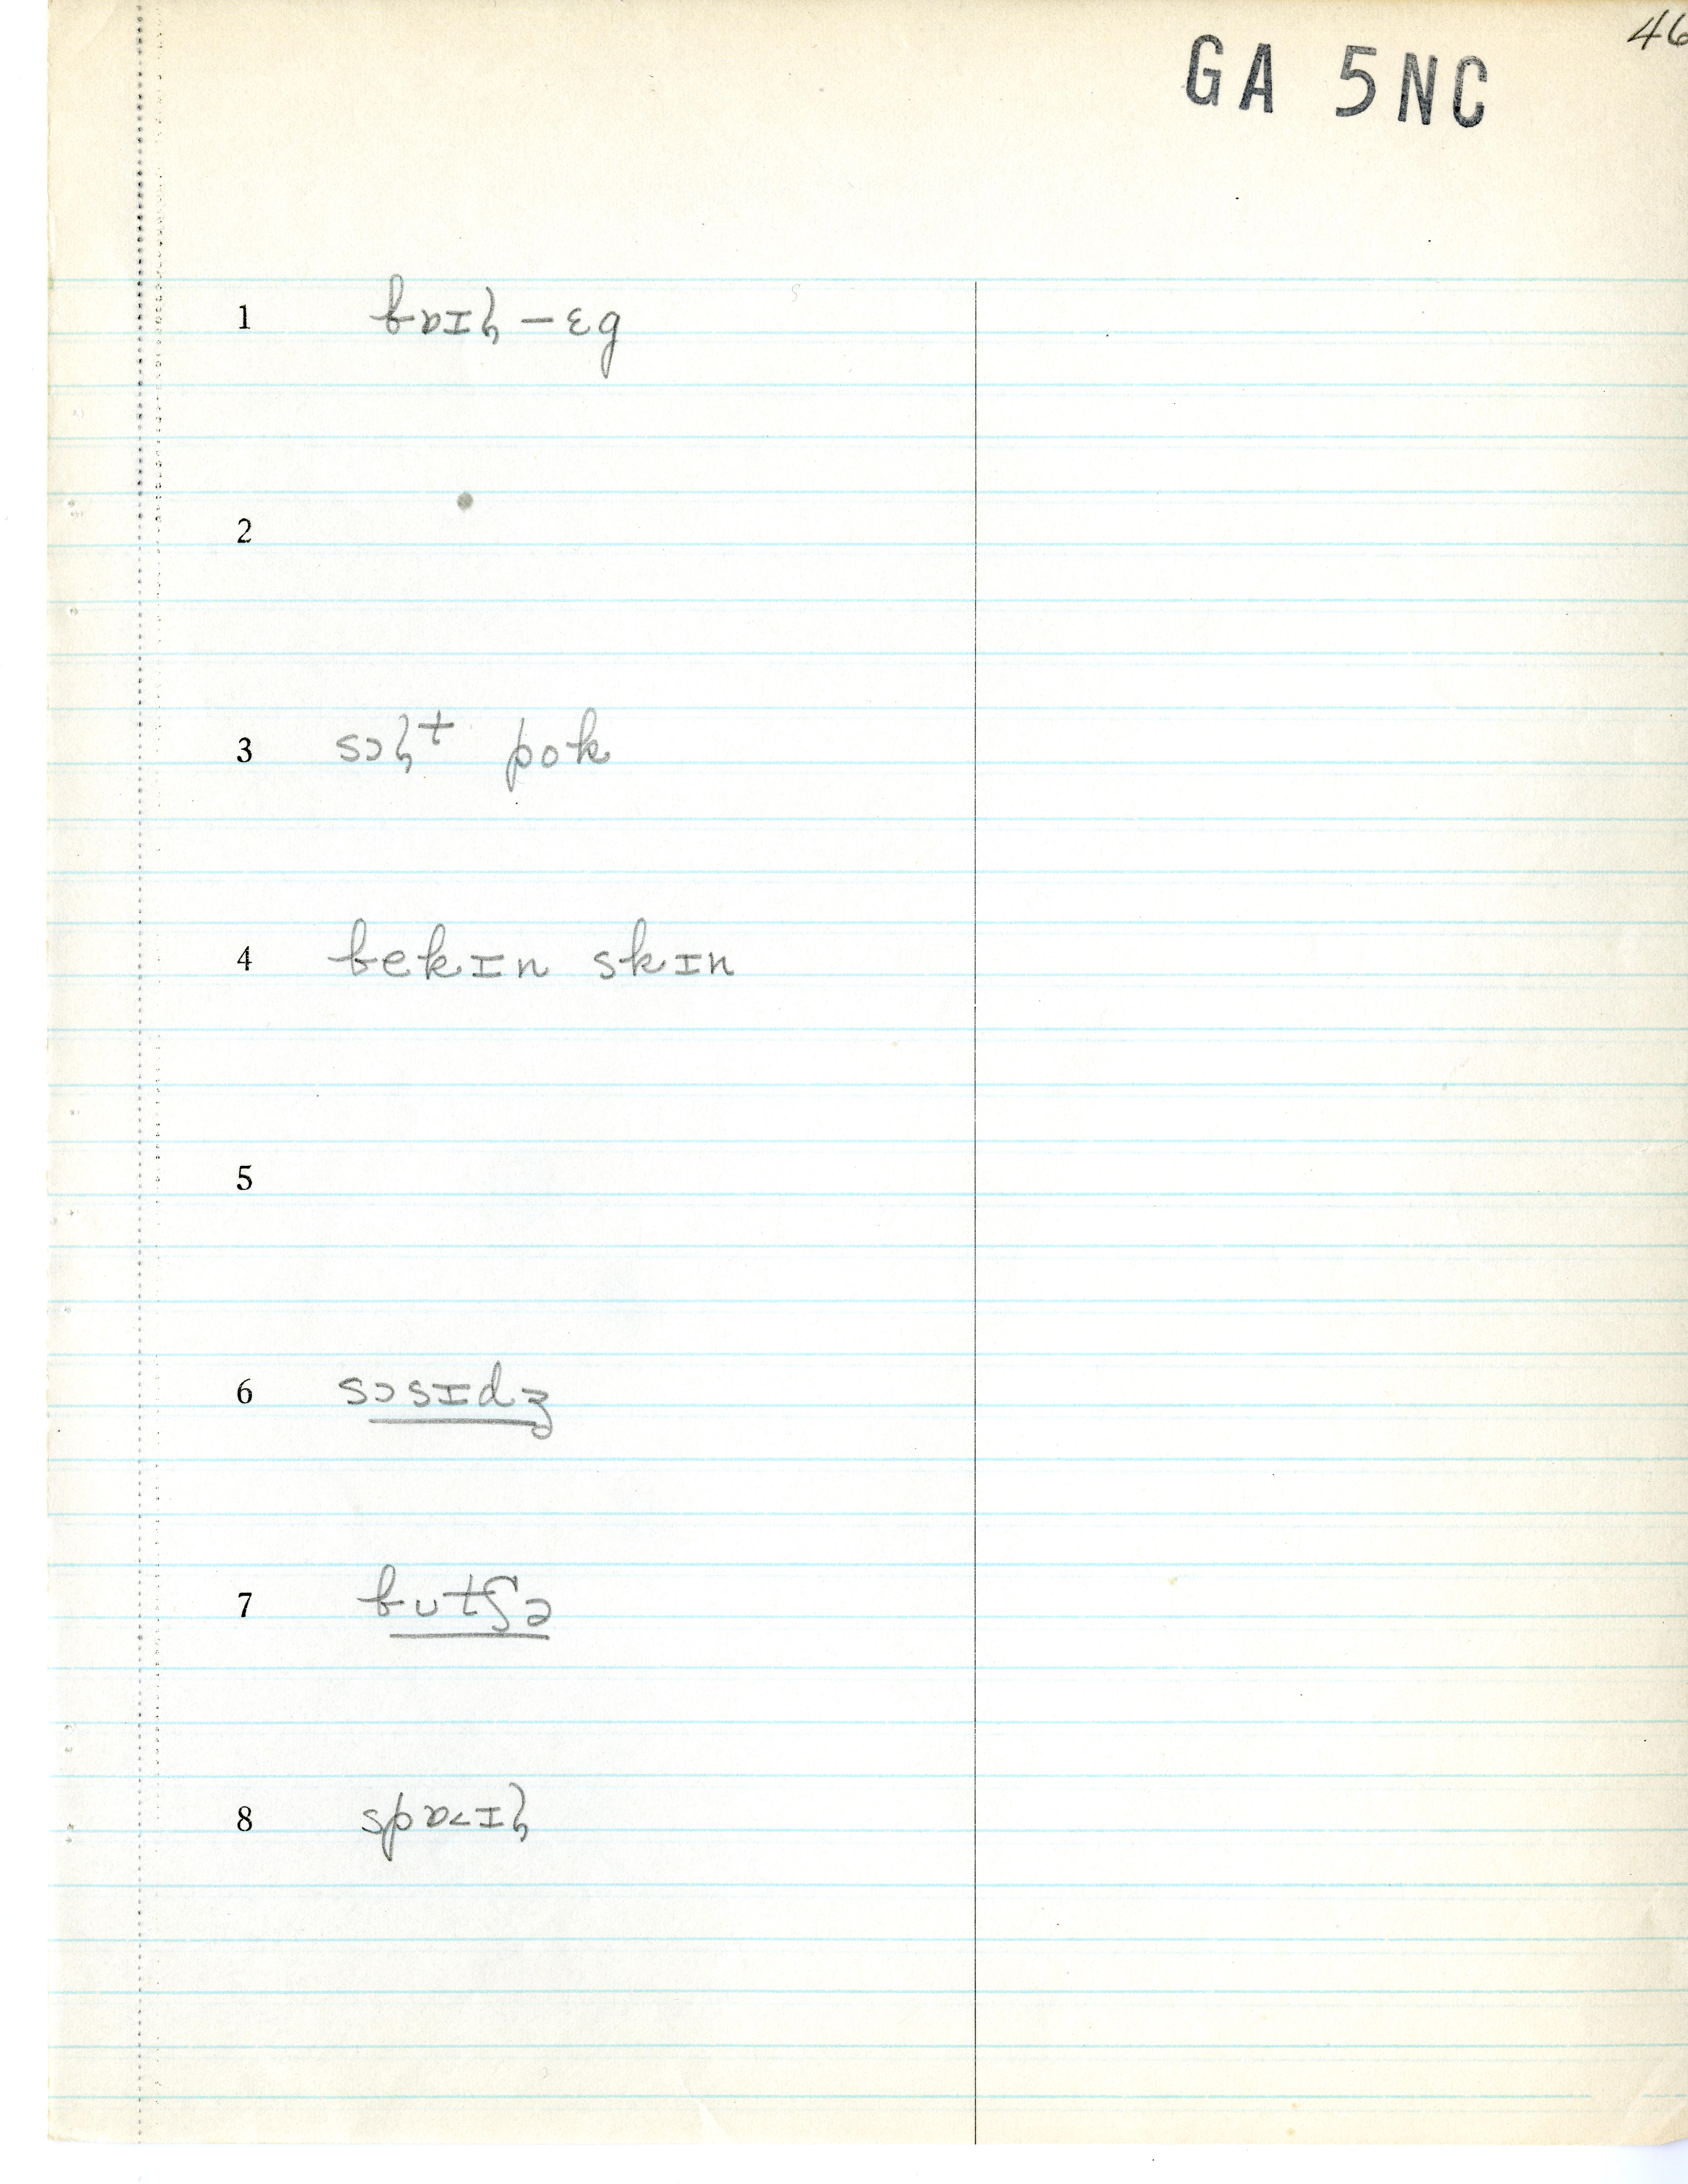 46
GA 5NC
1 bɒɪɫ-ɛg
2
3 sɔɫt pok
4 bekɪn skɪn
5
6 sɔsɪdʒ
7 butʃə
8 spɒ˂ɪɫ